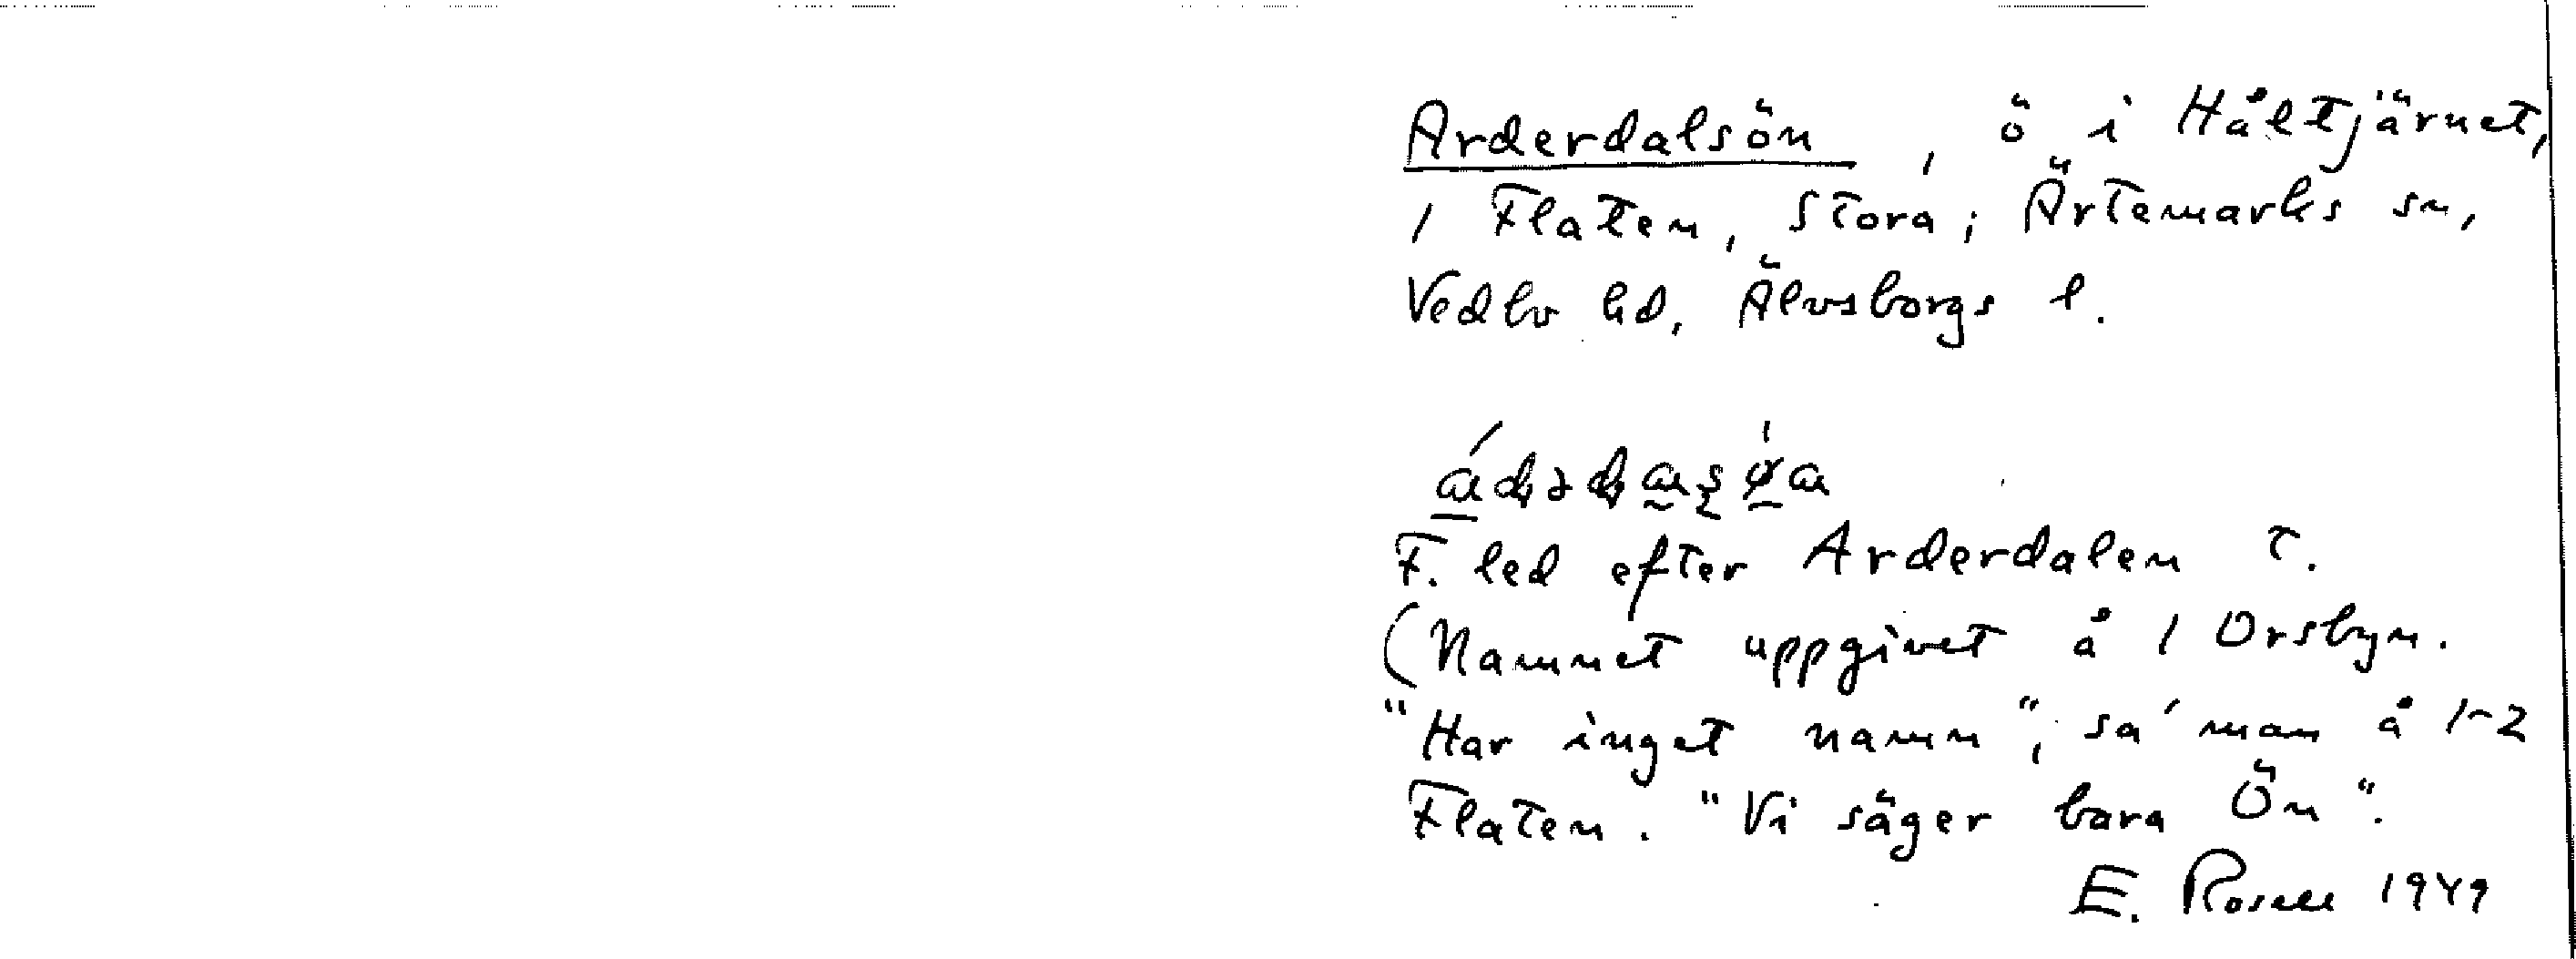 Arderdalsön, ö i Håltjärnet,
1 Flaten, Stora; Ärtemarks sn,
Vedbo hd, Älvsborgs l.
F. led efter Arderdalen T.
(Namnet uppgivet å 1 Orsbyn.
"Har inget namn", sa' man å 1-2
Flaten. "Vi säger bara Ön".
E. Rosell 1949